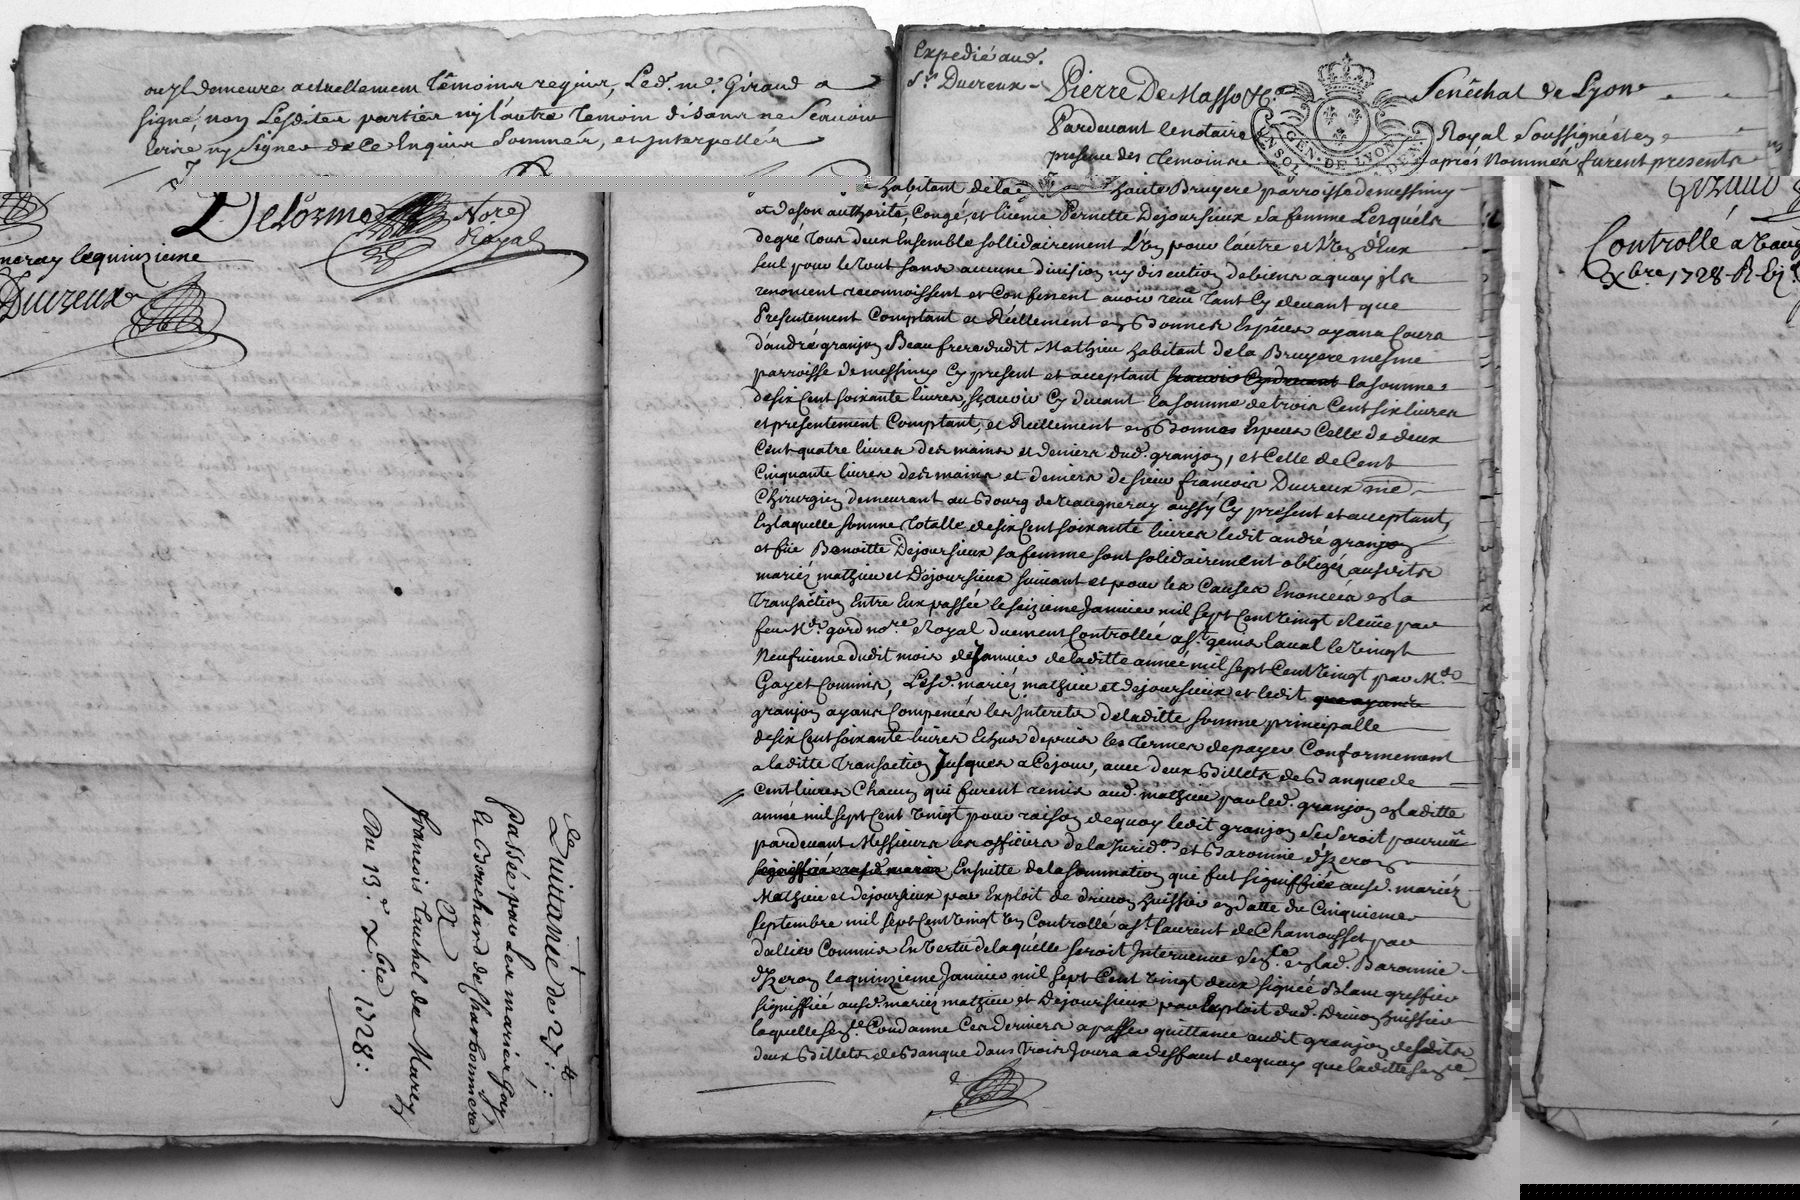 ou il demeure actuellement Témoins requis, Led. me. Giraud a
signé, non Lesdites parties ny l'autre Temoin disans ne Scavoir
Ecrire ny Signer de ce Enquis Sommés, et Interpellés
Delorme Nore
Royal
neray lequinzieme
Ducreux
de
Quittance de 27:
Passée par Les mariés Goy
le Bouchard de Charbonnieres
A
francois Luchel de Marcy
Du 13e. xbre 1728:
Expedié aud.
Sr. Ducreux
Pierre De Masso &c. Senêchal de Lyon
Pardevant le notaire Royal Soussigné et en
presence des Temoins aprés Nommés furent presents
GEN. DE LYON
habitant de la haute Bruyere parroisse de messimy
et de son authorité, Congé, et licence Pernette Dejoursieux sa femme Lesquels
de gré tous deux Ensemble sollidairement L'un pour l'autre et l'un d'Eux
seul pour le tout sans aucune division ny discution de biens a quoy ils
renoncent reconnoissent et Confessent avoir receu tant Cy devant que
Presentement Comptant et Réellement en Bonnes Espèces ayans Cours
d'andré granjon Beaufrere dudit Mathieu habitant de la Bruyere mesme
parroisse de messimy Cy present et acceptant la somme
de six Cent soixante livres, scavoir Cy devant la somme de trois Cent six livres
et presentement Comptant, et Réellement en Bonnes Especes Celle de deux
Cent quatre livres des mains et deniers dud. granjon, et Celle de Cent
Cinquante livres des mains et deniers de sieur francois Ducreux me.
Chirurgien demeurant au Bourg de Vaugneray aussy Cy present et acceptant,
En laquelle somme Totalle de six Cent soixante livres ledit andré granjon
et feüe Benoitte Dejoursieux sa femme sont solidairement obligés ausdits
mariés mathieu et Dejoursieux suivant et pour les Causes Enoncées en la
Transaction Entre Eux passée le seizieme Janvier mil sept Cent vingt Receüe par
feu Me. gord nore. Royal duement Controllée a St. genis Laval le vingt
Neufvieme dudit mois de Janvier de la ditte année mil sept Cent vingt par Me.
Gayet Commis, Lesd. mariés mathieu et dejoursieux et ledit
granjon ayans Compencés les Interets de laditte somme principalle
de six Cent soixante livres Echus depuis les Termes de payer Conformement
a laditte Transaction Jusques a Ce jour, avec deux Billets de Banque de
Cent livres Chacun qui furent remis aud. mathieu par led. granjon en laditte
année mil sept Cent vingt pour raison de quoy ledit granjon se seroit pourveu
pardevant Messieurs les officiers de la Jurid.on et Baronnie d'Izeron
Ensuitte de la sommation qui fut signiffiée ausd. mariés
Mathieu et dejoursieux par Exploit de drivon huissier en datte du Cinquieme
septembre mil sept Cent vingt un Controllé a St. Laurent de Chamousset par
dalier Commis En vertu de laquelle seroit Intervenue sence. en lad. Baronnie
d'Izeron le quinzieme Janvier mil sept Cent vingt deux signée Blanc greffier
signiffiée ausd. mariés mathieu et Dejoursieux par Exploit dud. Drivon huissier
laquelle sence. Condanne Ces derniers a passer quittance audit granjon desdits
deux Billets de Banque dans trois Jours a deffaut de quoy que laditte sence
Giraud
Controllé a Vaug
xbre. 1728 R